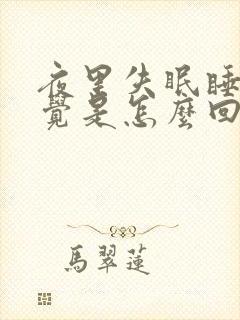 夜里失眠睡
覺是怎麼回
馬翠蓮